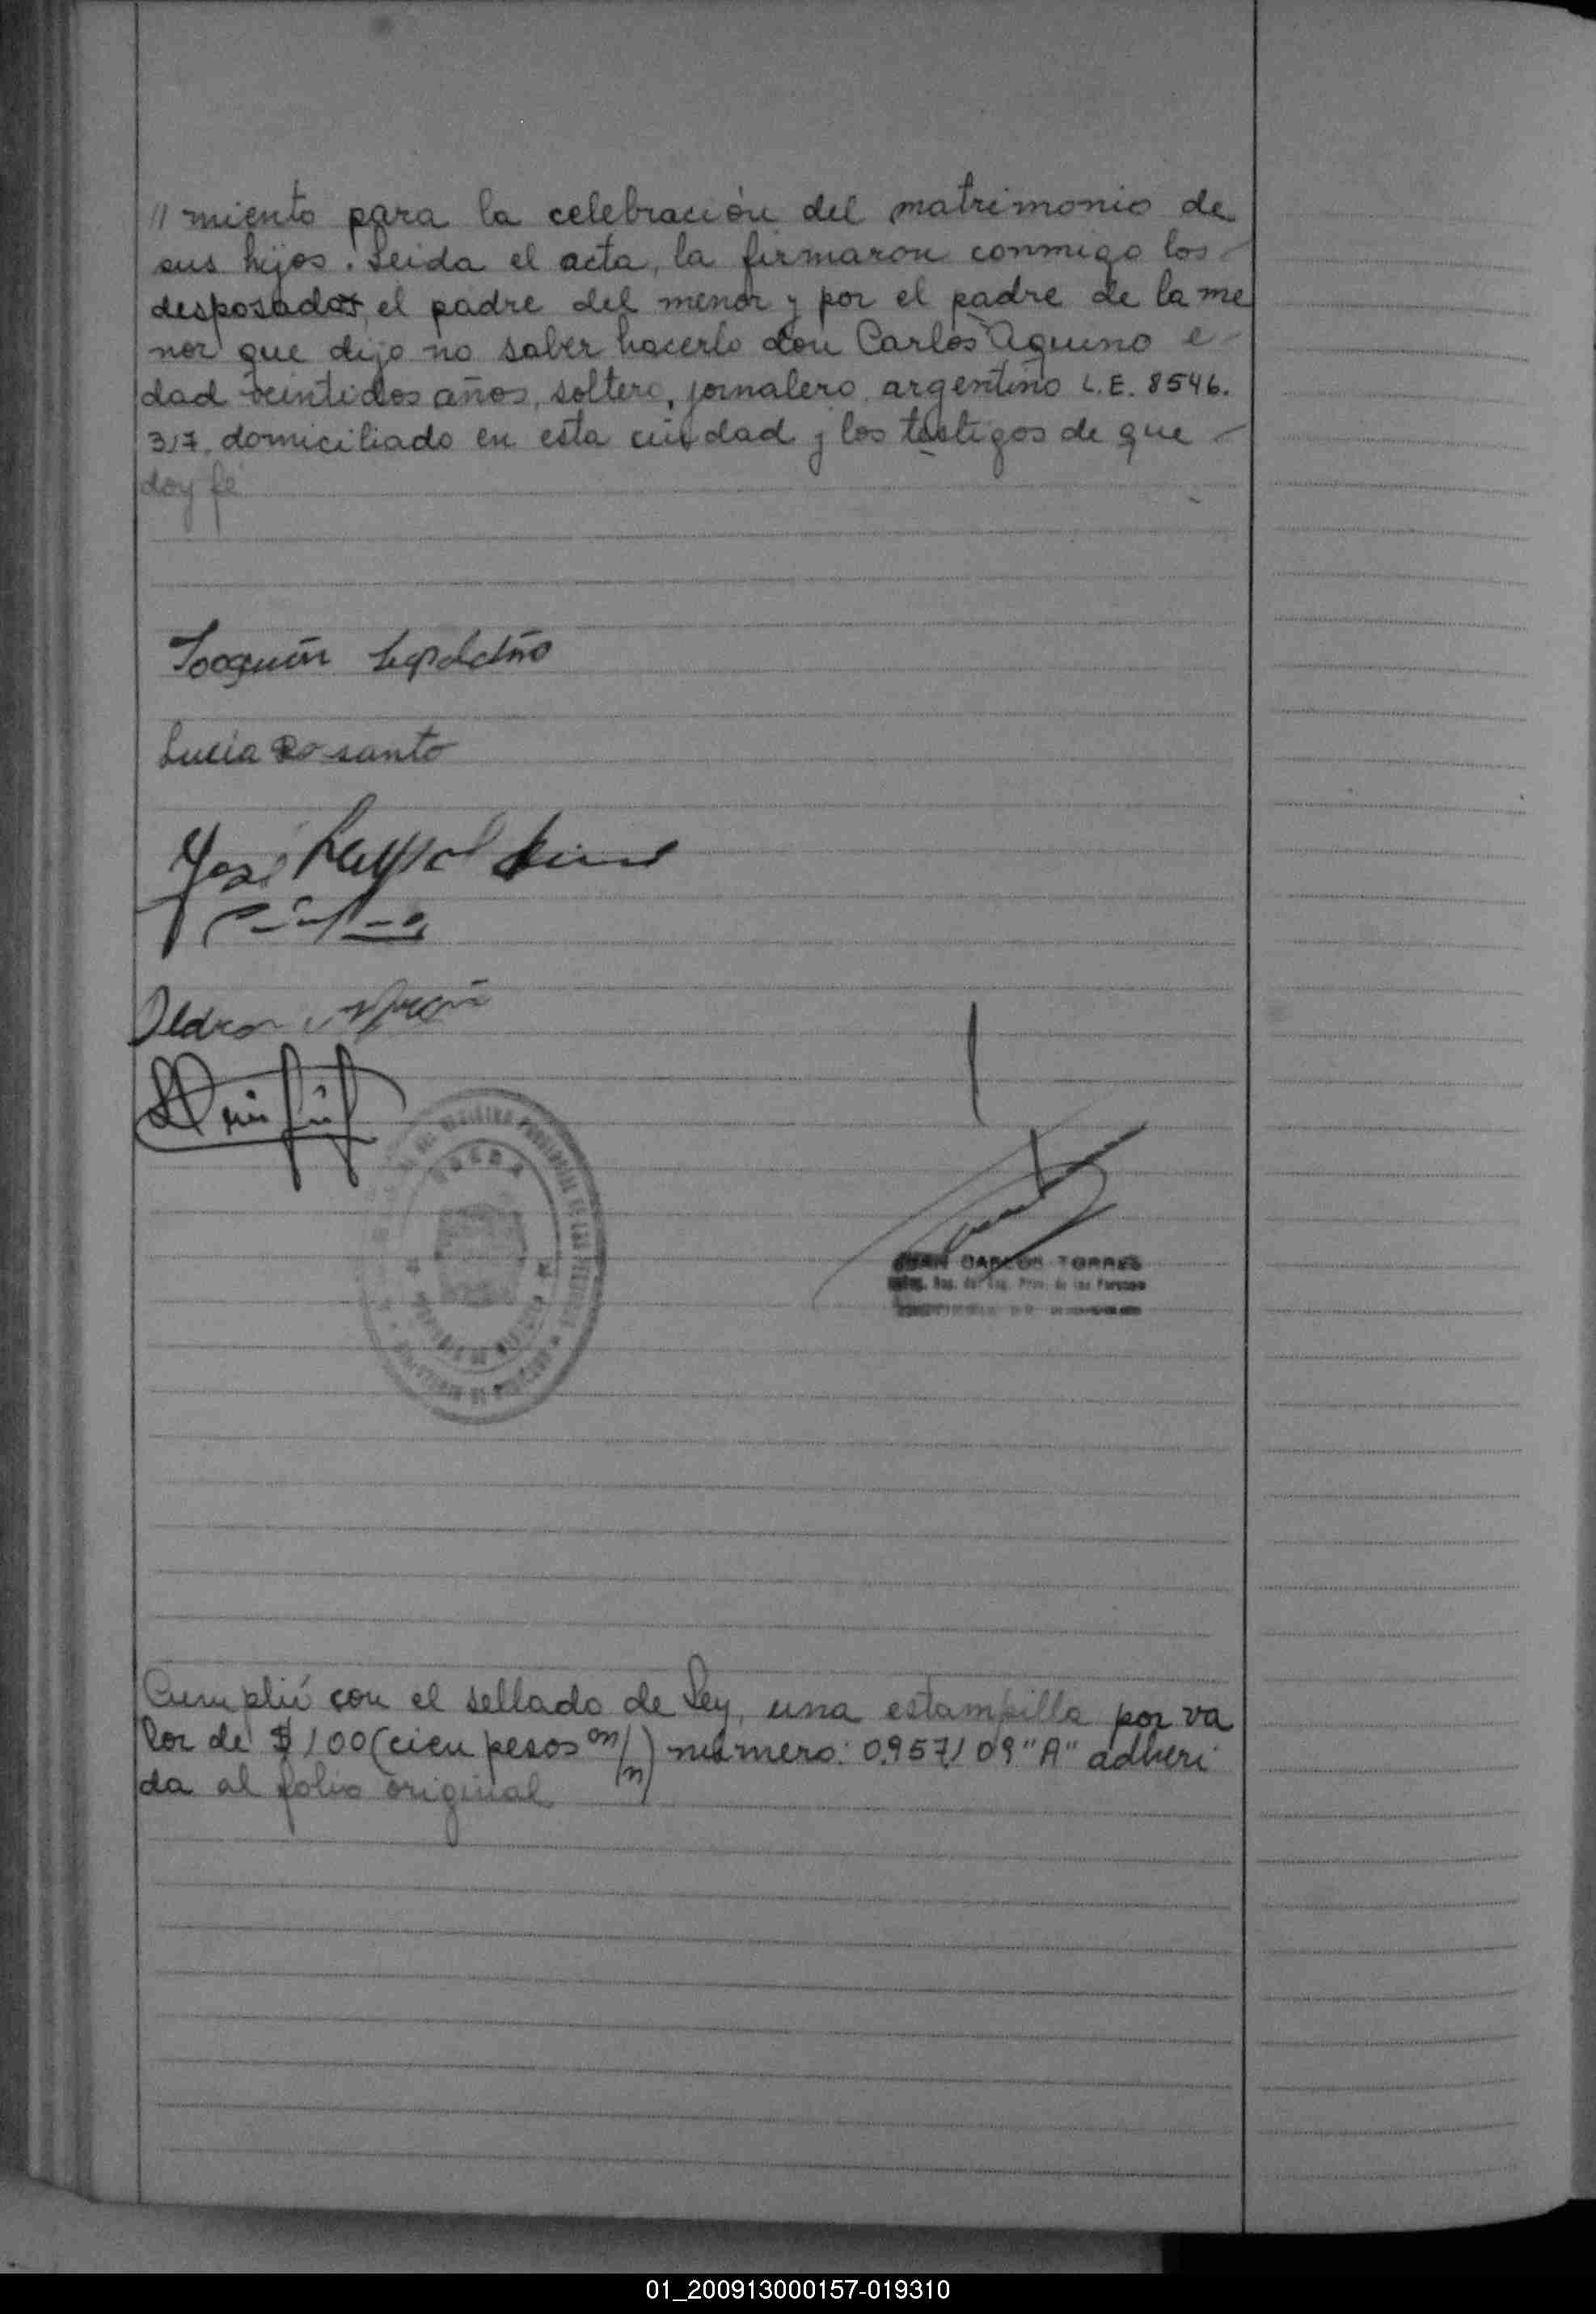 // miento para la celebración del matrimonio de
sus hijos. Leida el acta, la firmaron conmigo los
desposados, el padre del menor y por el padre de la me
nor que dijo no saber hacerlo don Carlos Aquino e
dad veintidos años, soltero, jornalero, argentino L.E. 8546.
317. domiciliado en esta ciudad y los testigos de que
doy fé
Joaquin
Lucia Do santo
José
JUAN CARLOS TORRES
Cumplió con el sellado de Ley, una estampilla por va
lor de $ 100 (cien pesos m/n) número: 0.957109 "A" adheri
da al folio original
01_200913000157-019310